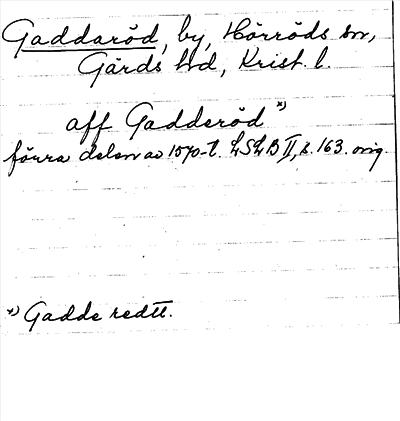 Gaddaröd, by, Hörröds sn,
Gärds hd, Krist. l.
aff Gadderöd *)
förra delen av 1570-t. LSLB II, s. 163. orig.
*) Gadde redtt.